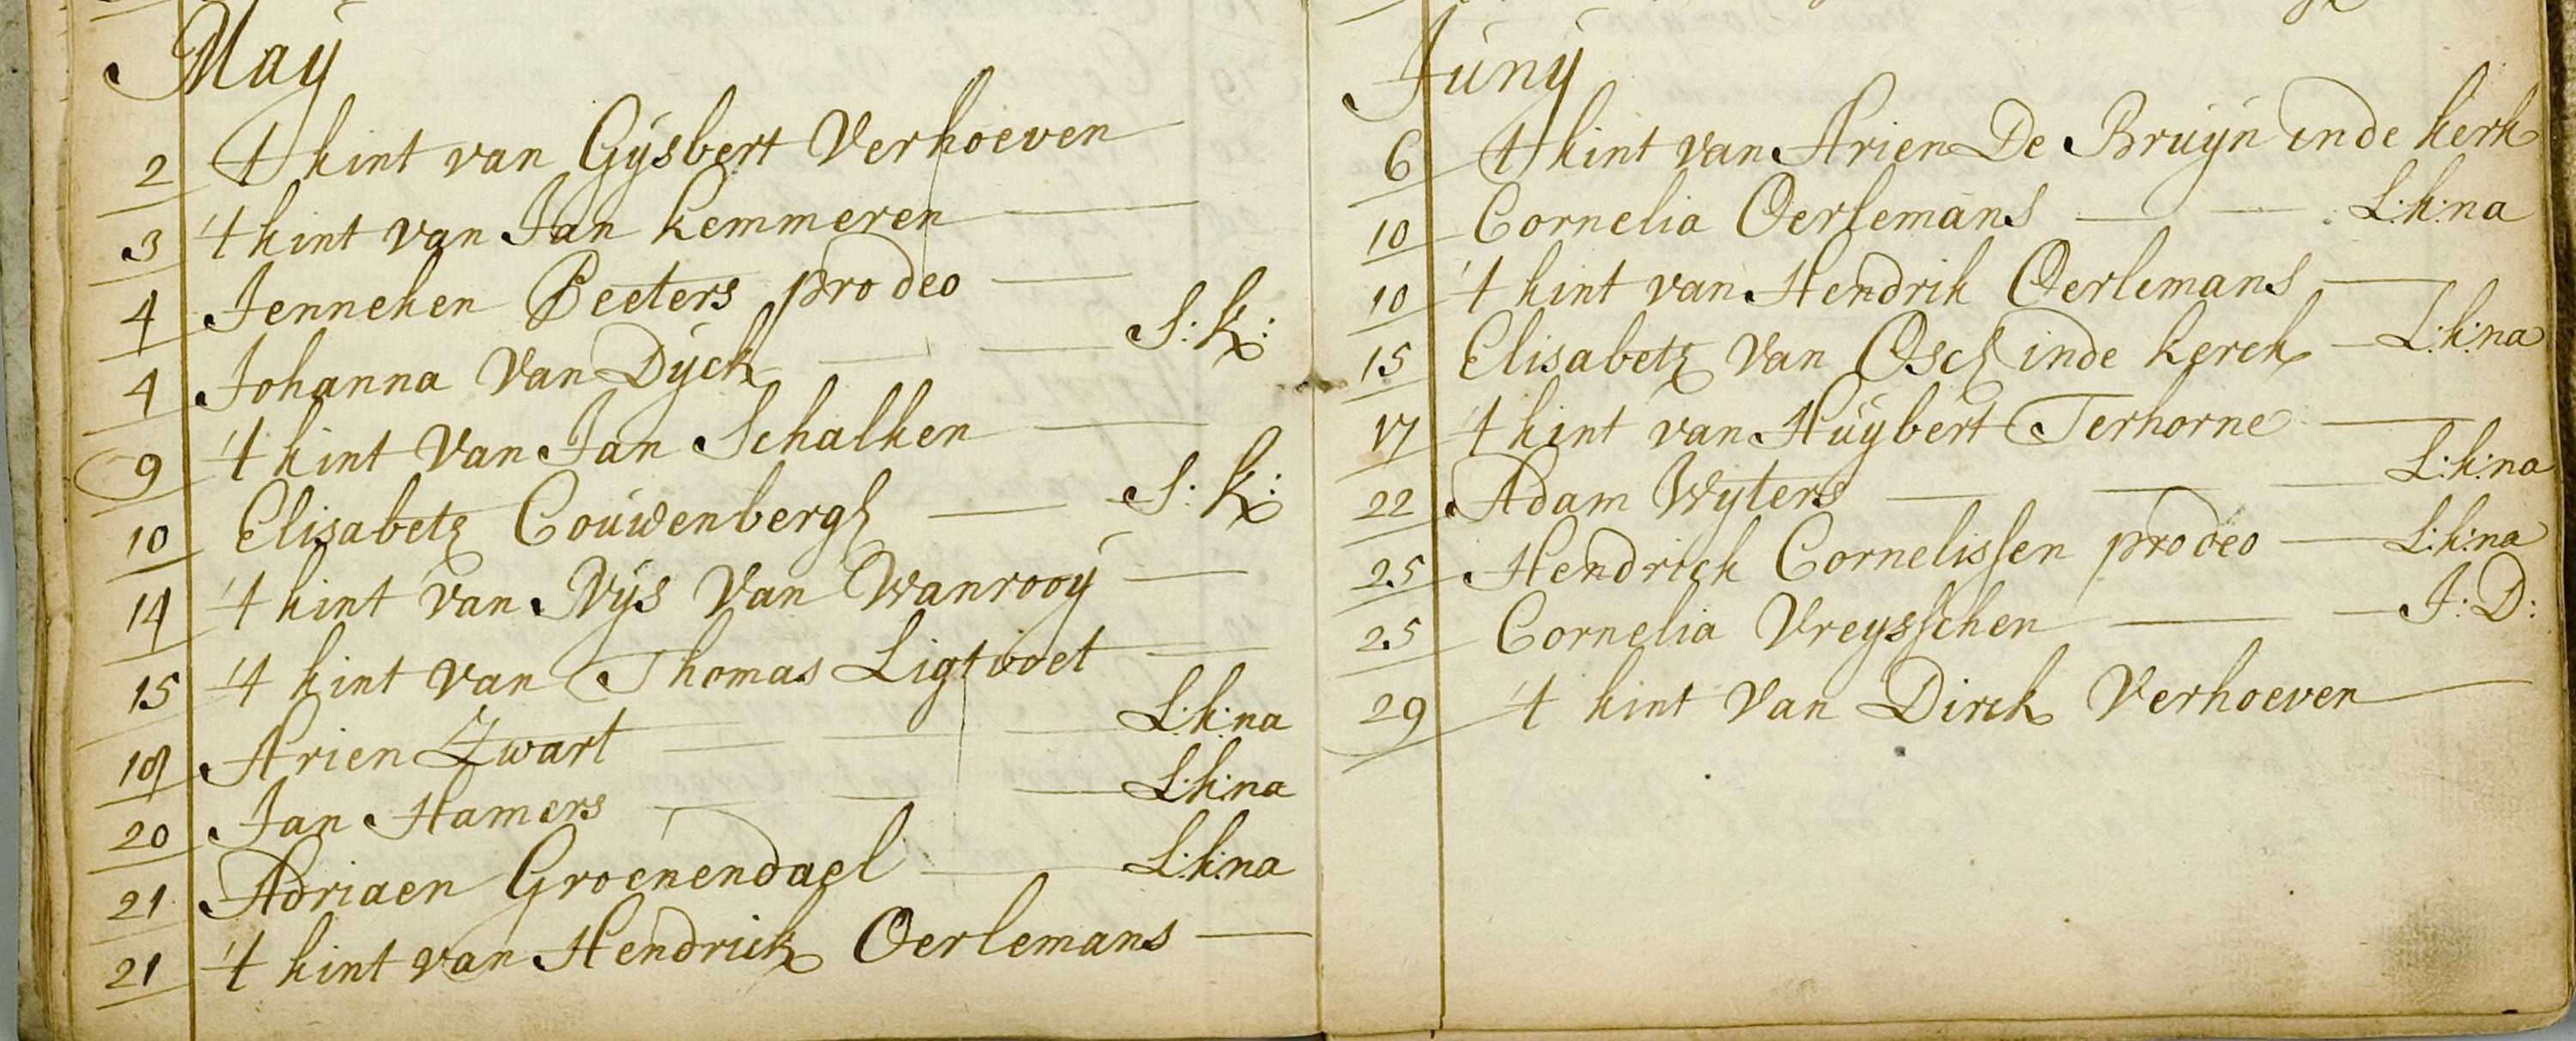 Maÿ
2 't kint van Gÿsbert Verhoeven
3 't kint van Jan Kemmeren
4 Jenneken Peeters pro deo
4 Johanna Van Dÿck S: K:
9 't kint Van Jan Schalken
10 Elisabeth Couwenbergh S: K:
14 't kint Van Nÿs Van Wanrooÿ
15 't kint Van Thomas Ligtvoet
19 Arien Zwart L:k:na
20 Jan Hamers L:k:na
21 Adriaen Groenendael L:k:na
21 't kint van Hendrick Oerlemans
Junÿ
6 't kint van Arien De Bruÿn inde kerk
10 Cornelia Oerlemans L:k:na
10 't kint van Hendrik Oerlemans
15 Elisabeth Van Osch inde kerck L:k:na
17 't kint van Huÿbert Terhorne
22 Adam Wyters L:k:na
25 Hendrick Cornelissen pro deo L:k:na
25 Cornelia Vreysschen J: D:
29 't kint Van Dirck Verhoeven